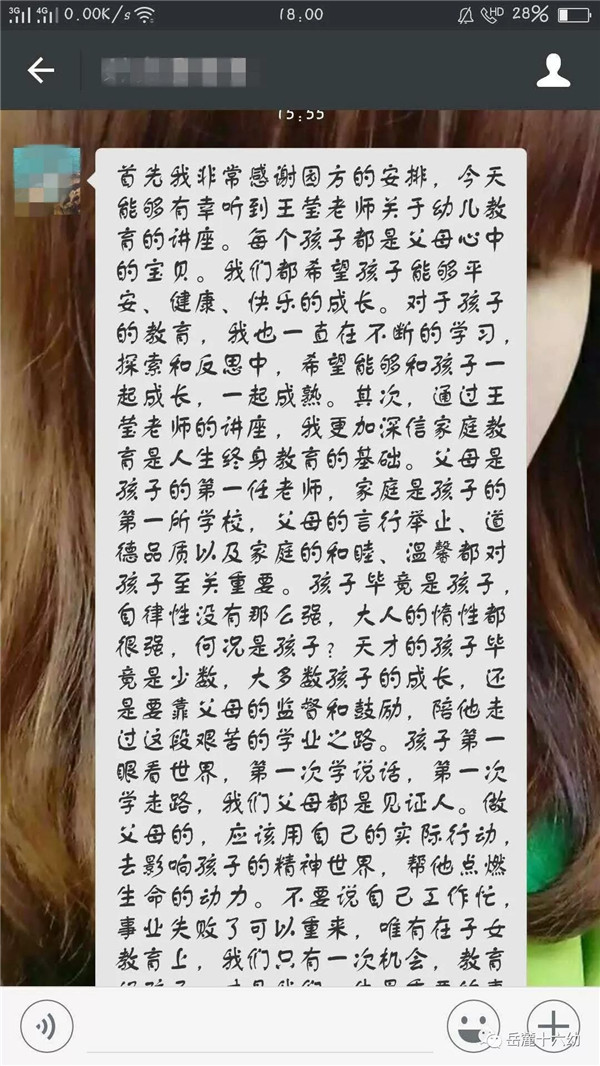 3G 4G 0.00K/s 18.00 HD 28%
15:55
首先我非常感谢园方的安排，今天
能够有幸听到王莹老师关于幼儿教
育的讲座。每个孩子都是父母心中
的宝贝。我们都希望孩子能够平
安、健康、快乐的成长。对于孩子
的教育，我也一直在不断的学习，
探索和反思中，希望能够和孩子一
起成长，一起成熟。其次，通过王
莹老师的讲座，我更加深信家庭教
育是人生终身教育的基础。父母是
孩子的第一任老师，家庭是孩子的
第一所学校，父母的言行举止、道
德品质以及家庭的和睦、温馨都对
孩子至关重要。孩子毕竟是孩子，
自律性没有那么强，大人的惰性都
很强，何况是孩子？天才的孩子毕
竟是少数，大多数孩子的成长，还
是要靠父母的监督和鼓励，陪他走
过这段艰苦的学业之路。孩子第一
眼看世界，第一次学说话，第一次
学走路，我们父母都是见证人。做
父母的，应该用自己的实际行动，
去影响孩子的精神世界，帮他点燃
生命的动力。不要说自己工作忙，
事业失败了可以重来，唯有在子女
教育上，我们只有一次机会，教育
岳麓十六幼